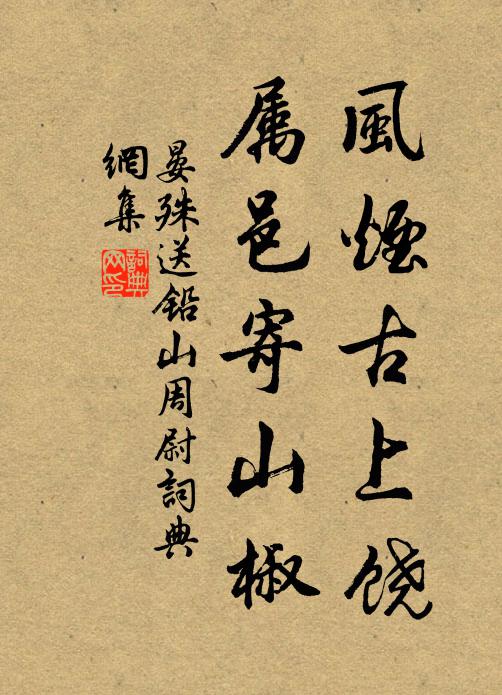 風煙古上饶
属邑寄山椒
晏殊送铅山周尉詞典
網集
詞典
网印